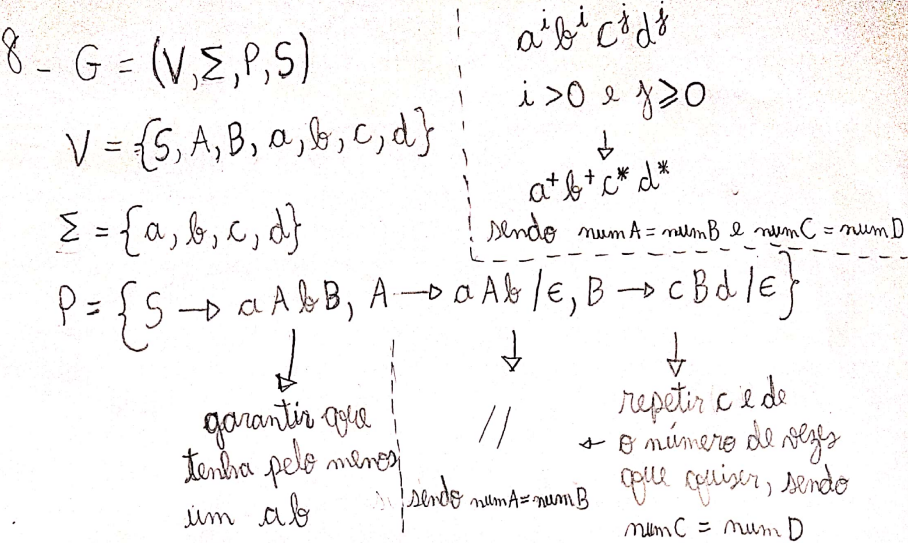 8 - G = (V, Σ, P, S)
V = {S, A, B, a, b, c, d}
Σ = {a, b, c, d}
aⁱbⁱcʲdʲ
i > 0 e j ≥ 0
↓
a⁺b⁺c*d*
sendo numA = numB e numC = numD
P = {S → aAbB, A → aAb/ϵ, B → cBd/ϵ}
garantir que
tenha pelo menos
um ab
//
sendo numA = numB
repetir c e de
o número de vezes
que quiser, sendo
numC = numD